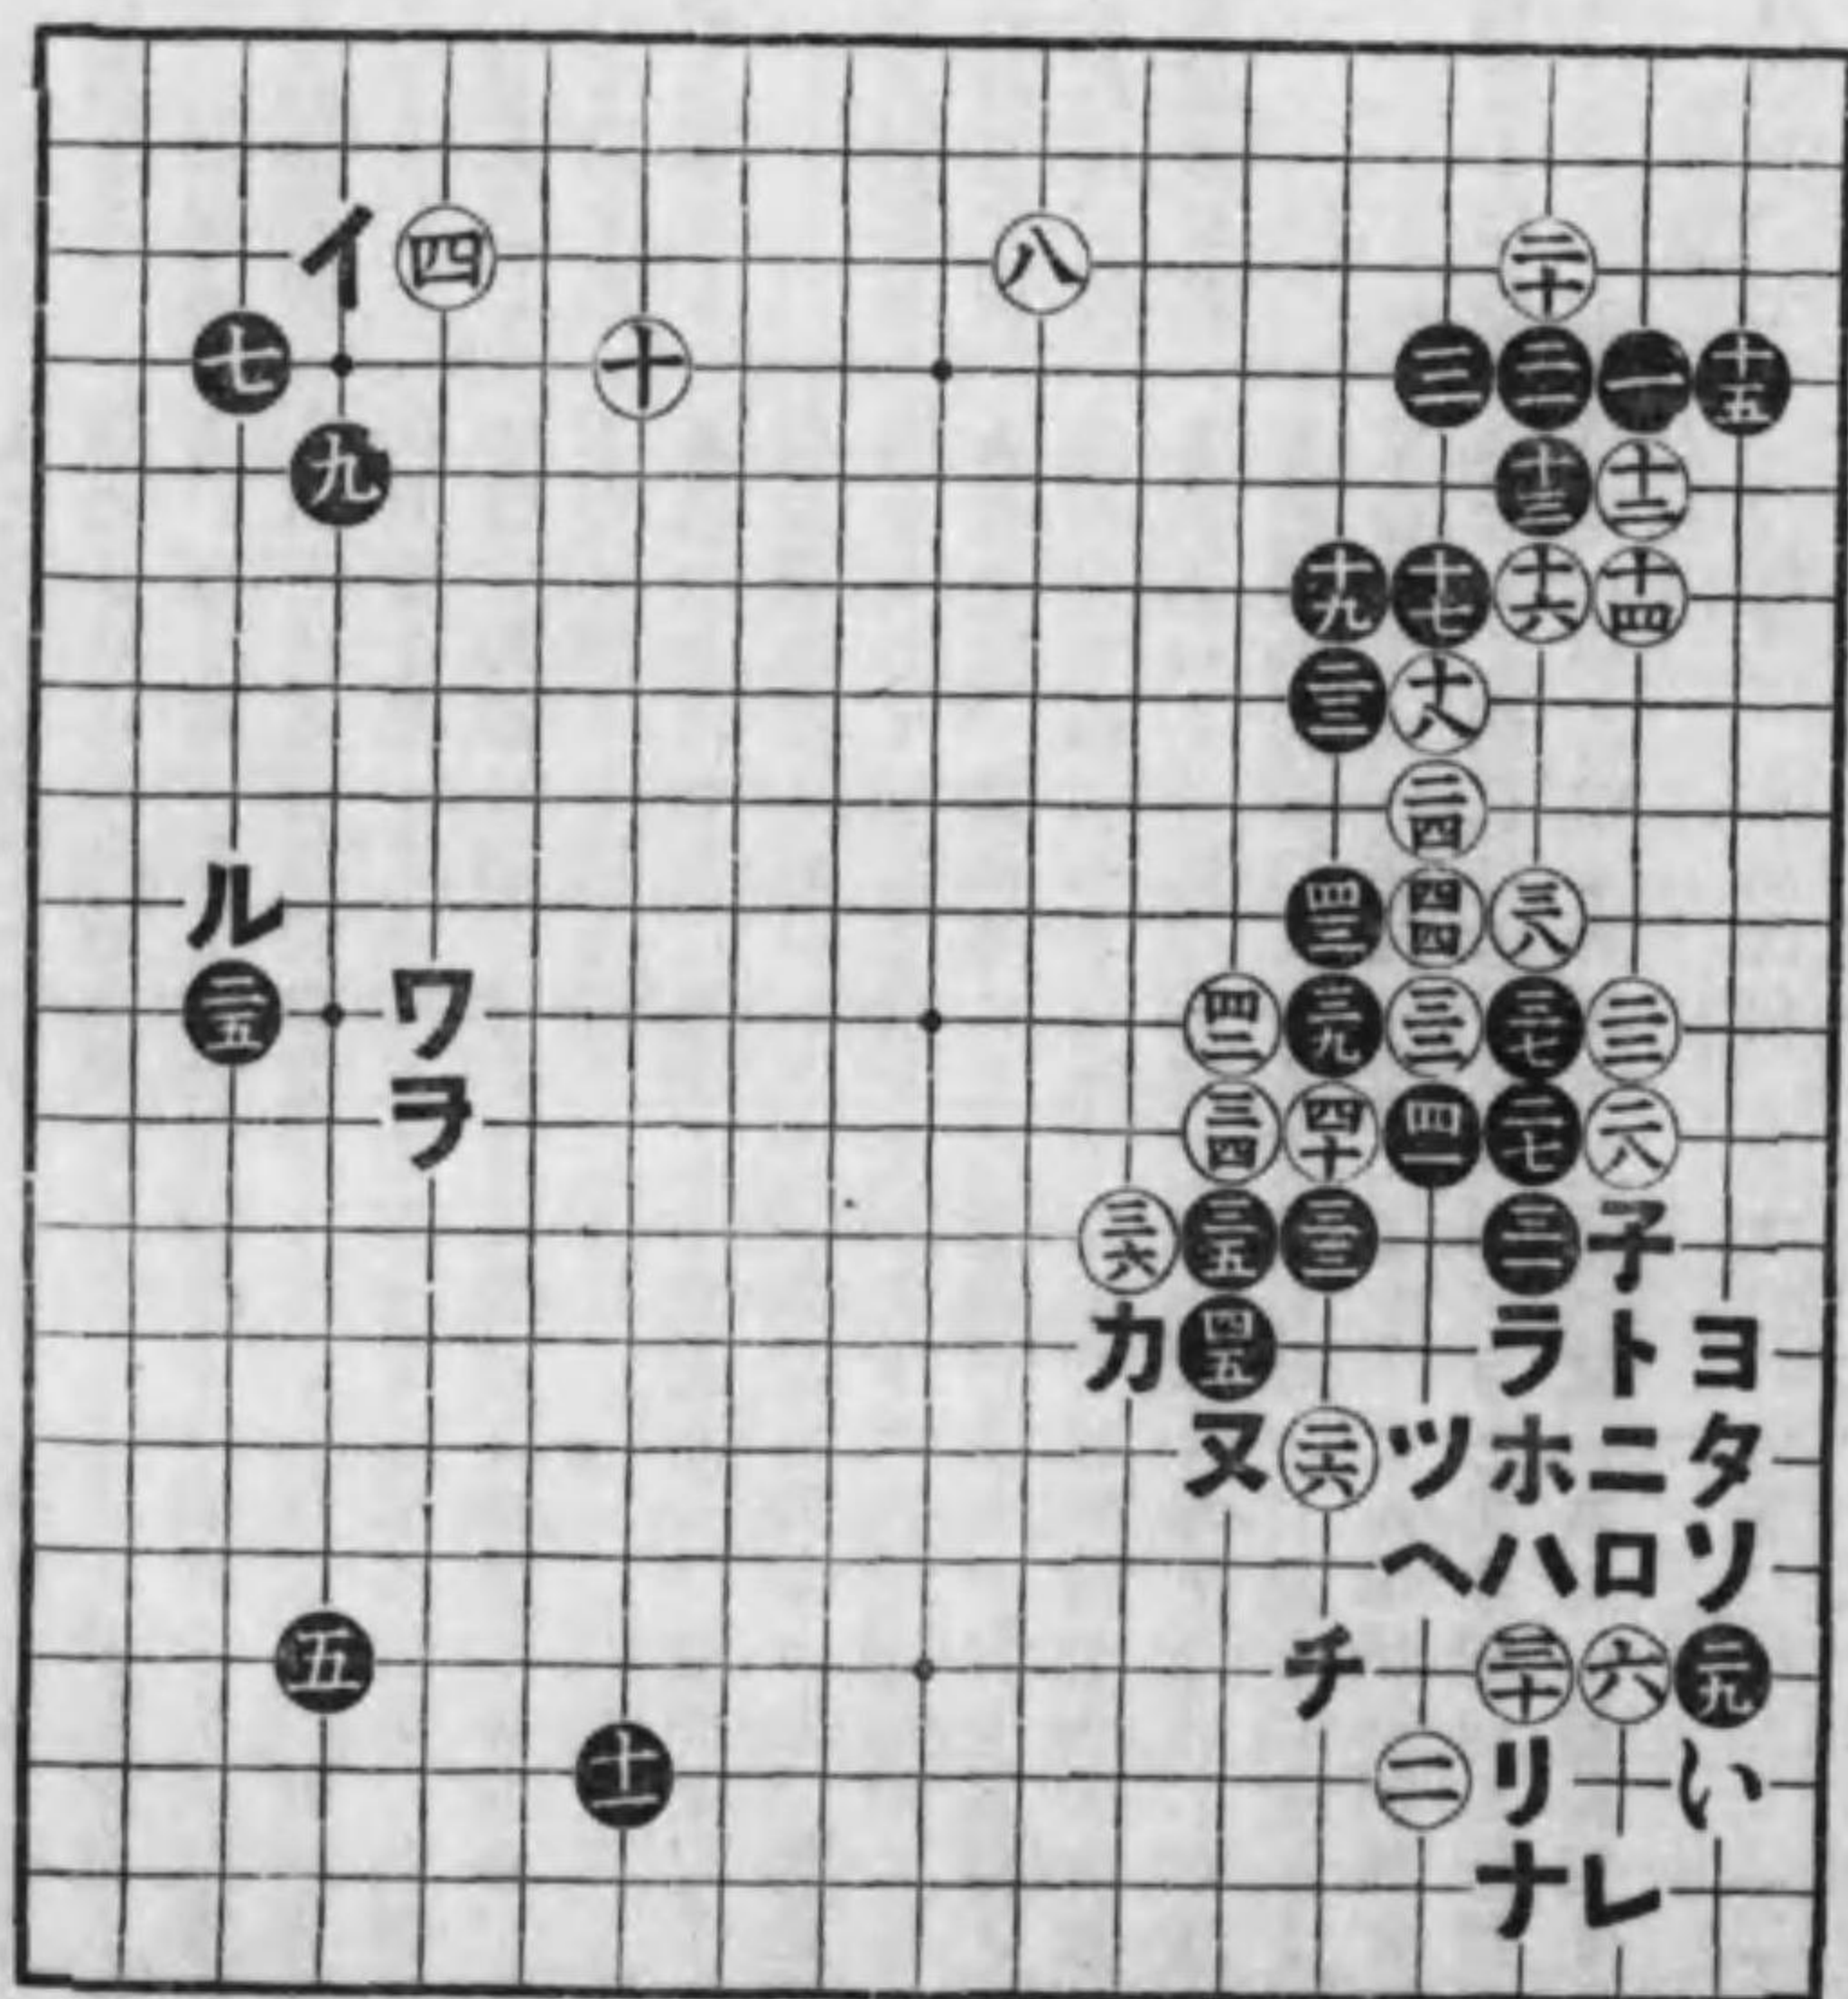 イ 四 八 二十
七 十 三 二一 一 十五
九 十三 十二
十九 十七 十六 十四
二三 十八
二四
ル 四三 四四 三八
二五 ワ 四二 三九 三二 三七 二二
ヲ 三四 四十 四一 二七 二八
三六 三五 三三 三一 子
カ 四五 ラ ト ヨ
ヌ 二六 ツ ホ ニ タ
ヘ ハ ロ ソ
五 チ 三十 六 二九
十一 二 リ い
ナ レ